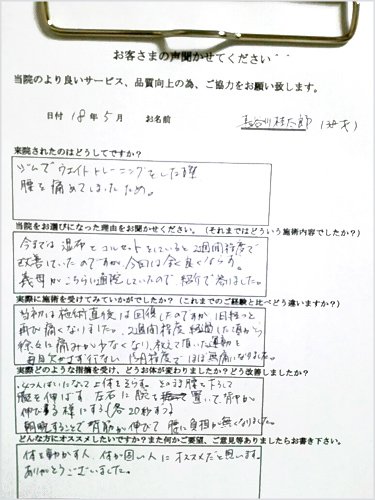 お客さまの声聞かせてください
当院のより良いサービス、品質向上の為、ご協力をお願い致します。
日付 18年 5月 お名前 長谷川桂太郎
来院されたのはどうしてですか?
ジムでウェイトトレーニングをした時
腰を痛めてしまったため。
当院をお選びになった理由をお聞かせください。(それまではどういう施術内容でしたか?)
今までは湿布とコルセットをしていると2週間程度で
改善していたのですが、今回は全く良くならず。
義母がこちらに通院していたので、紹介で来ました。
実際に施術を受けてみていかがでしたか?(これまでのご経験と比べどう違いますか?)
当初は施術直後は回復したのですが1日経つと
再び痛くなりました。2週間程度経過した頃から
徐々に痛みが少なくなり、教えて頂いた運動を
毎日欠かさず行ない 1ヶ月程度でほぼ無痛になりました。
実際どのような指摘を受け、どうお体が変わりましたか?どう改善しましたか?
四つんばいになって上体をそらす そのまま腰を下ろして
腕を伸ばす 左右に腕を置いて、背中が
伸びる様にする(各20秒ずつ)
朝晩することで背筋が伸びて腰に負担が無くなりました。
どんな方にオススメしたいですか?また何かご要望、ご意見等ありましたらお書き下さい。
体を動かす人、体が固い人にオススメだと思います。
ありがとうございました。